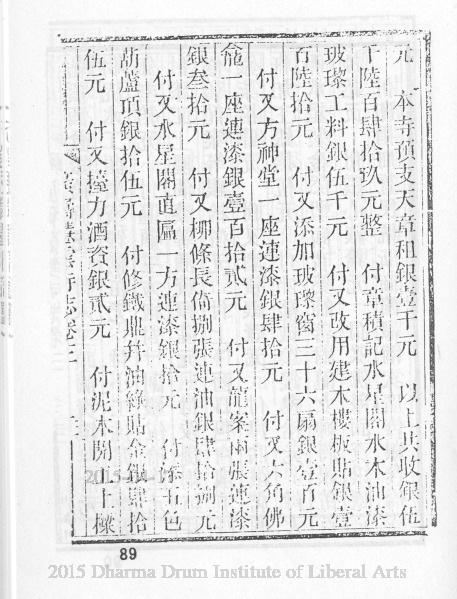 元　本寺預支天章租銀壹千元　以上共收銀伍
千陸百肆拾玖元整　付章積記水星閣水木油漆
玻瓈工料銀伍千元　付又改用建木樓板貼銀壹
百陸拾元　付又添加玻瓈窗三十六扇銀壹百元
付又方神堂一座連漆銀肆拾元　付又六角佛
龕一座連漆銀壹百拾貳元　付又龍案兩張連漆
銀叁拾元　付又柳條長偹捌張連油銀肆拾捌元
付又水星閣直匾一方連漆銀拾元　付添五色
葫蘆頂銀拾伍元　付修鐵鼎幷油綠貼金銀肆拾
伍元　付又擡力酒資銀貳元　付泥木開工上樑
寺志卷二
89
2015 Dharma Drum Institute of Liberal Arts